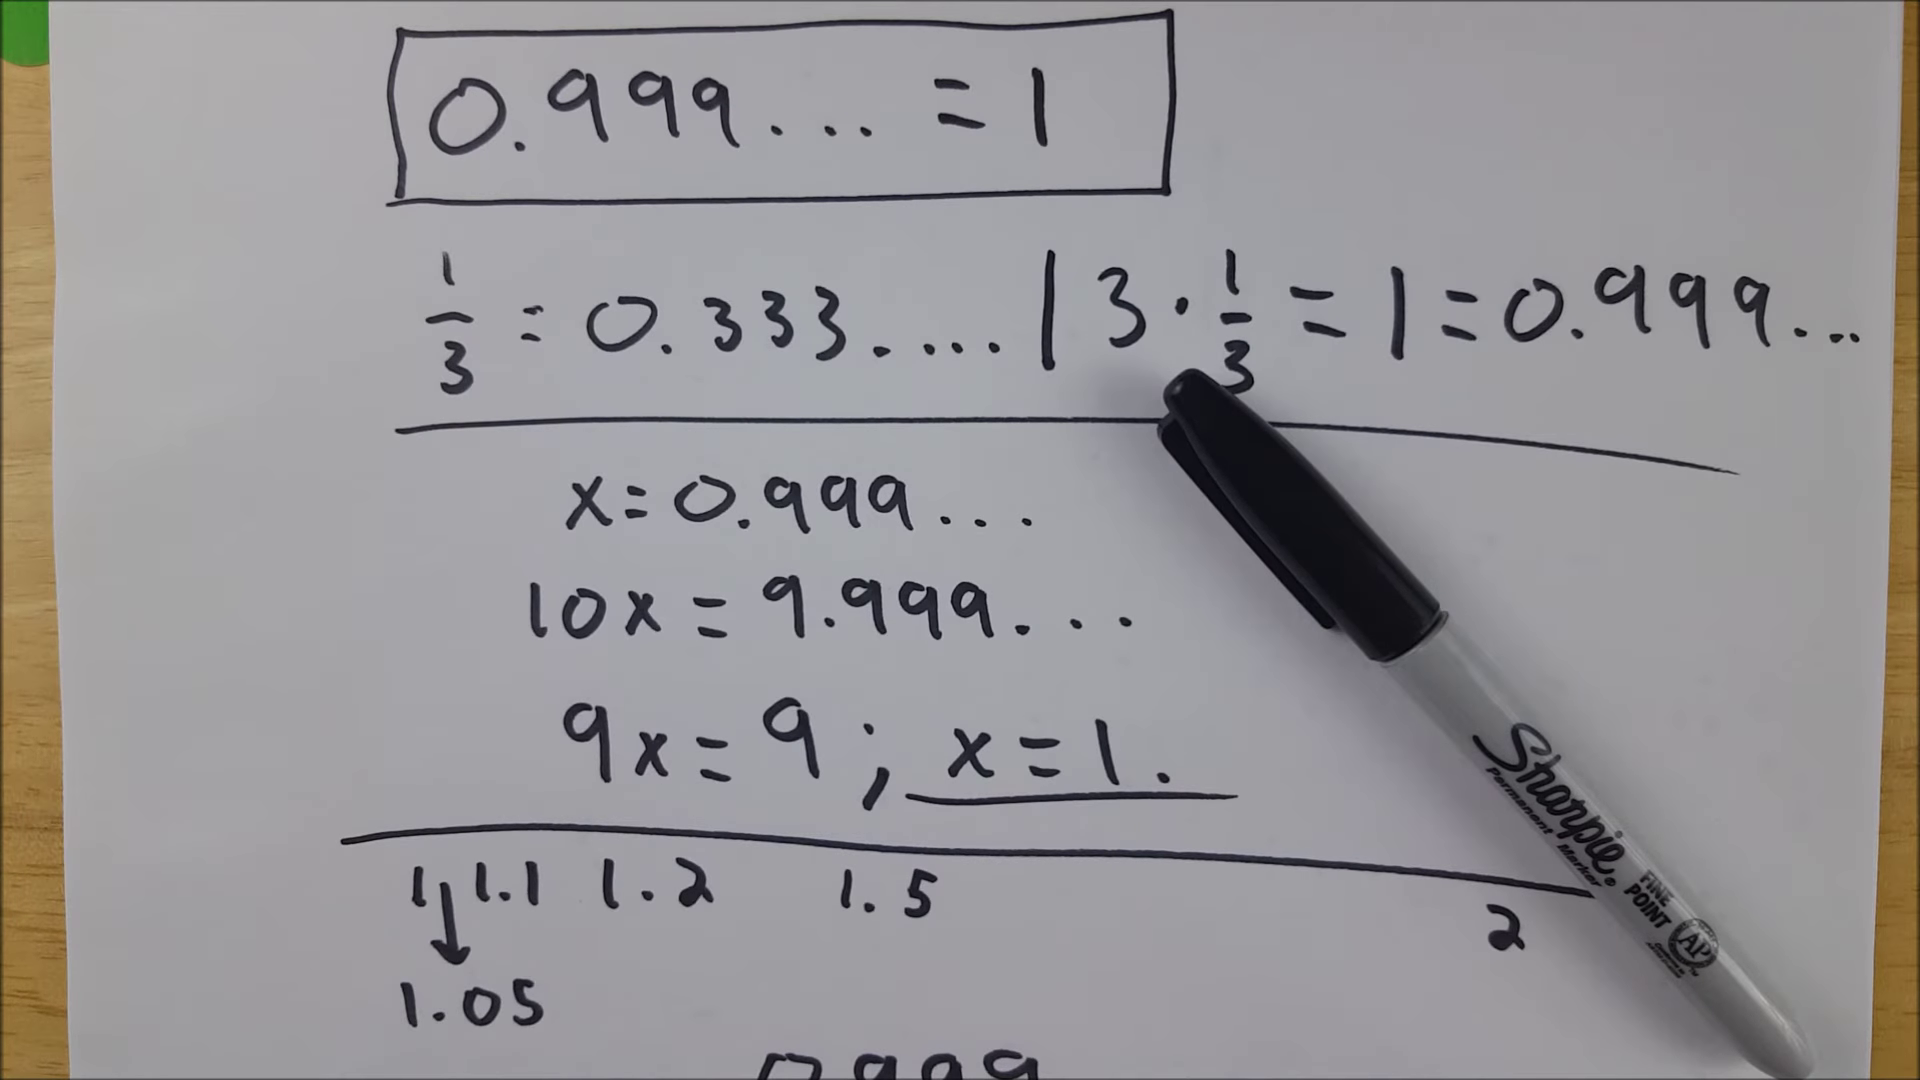 0.999... = 1
1/3 = 0.333.... | 3 · 1/3 = 1 = 0.999...
x = 0.999...
10x = 9.999...
9x = 9 ; x = 1.
1 1.1 1.2 1.5 2
1.05
0.999
Sharpie®
Permanent Marker
FINE POINT
AP